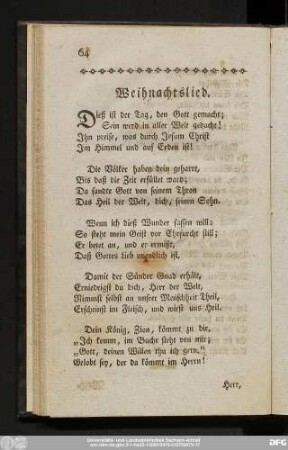 64
Weihnachtslied.
Dieß ist der Tag, den Gott gemacht;
Sein werd in aller Welt gedacht!
Ihn preise, was durch Jesum Christ
Im Himmel und auf Erden ist!
Die Völker haben dein geharrt,
Bis daß die Zeit erfüllet ward;
Da sandte Gott von seinem Thron
Das Heil der Welt, dich, seinen Sohn.
Wenn ich dieß Wunder fassen will:
So steht mein Geist vor Ehrfurcht still;
Er betet an, und er ermißt,
Daß Gottes Lieb unendlich ist.
Damit der Sünder Gnad erhält,
Erniedrigst du dich, Herr der Welt,
Nimmst selbst an unsrer Menschheit Theil,
Erscheinst im Fleisch, und wirst uns Heil.
Dein König, Zion, kömmt zu dir,
„Ich komm, im Buche steht von mir;
„Gott, deinen Willen thu ich gern.“
Gelobt sey, der da kömmt im Herrn!
Herr,
Universitäts- und Landesbibliothek Sachsen-Anhalt
DFG